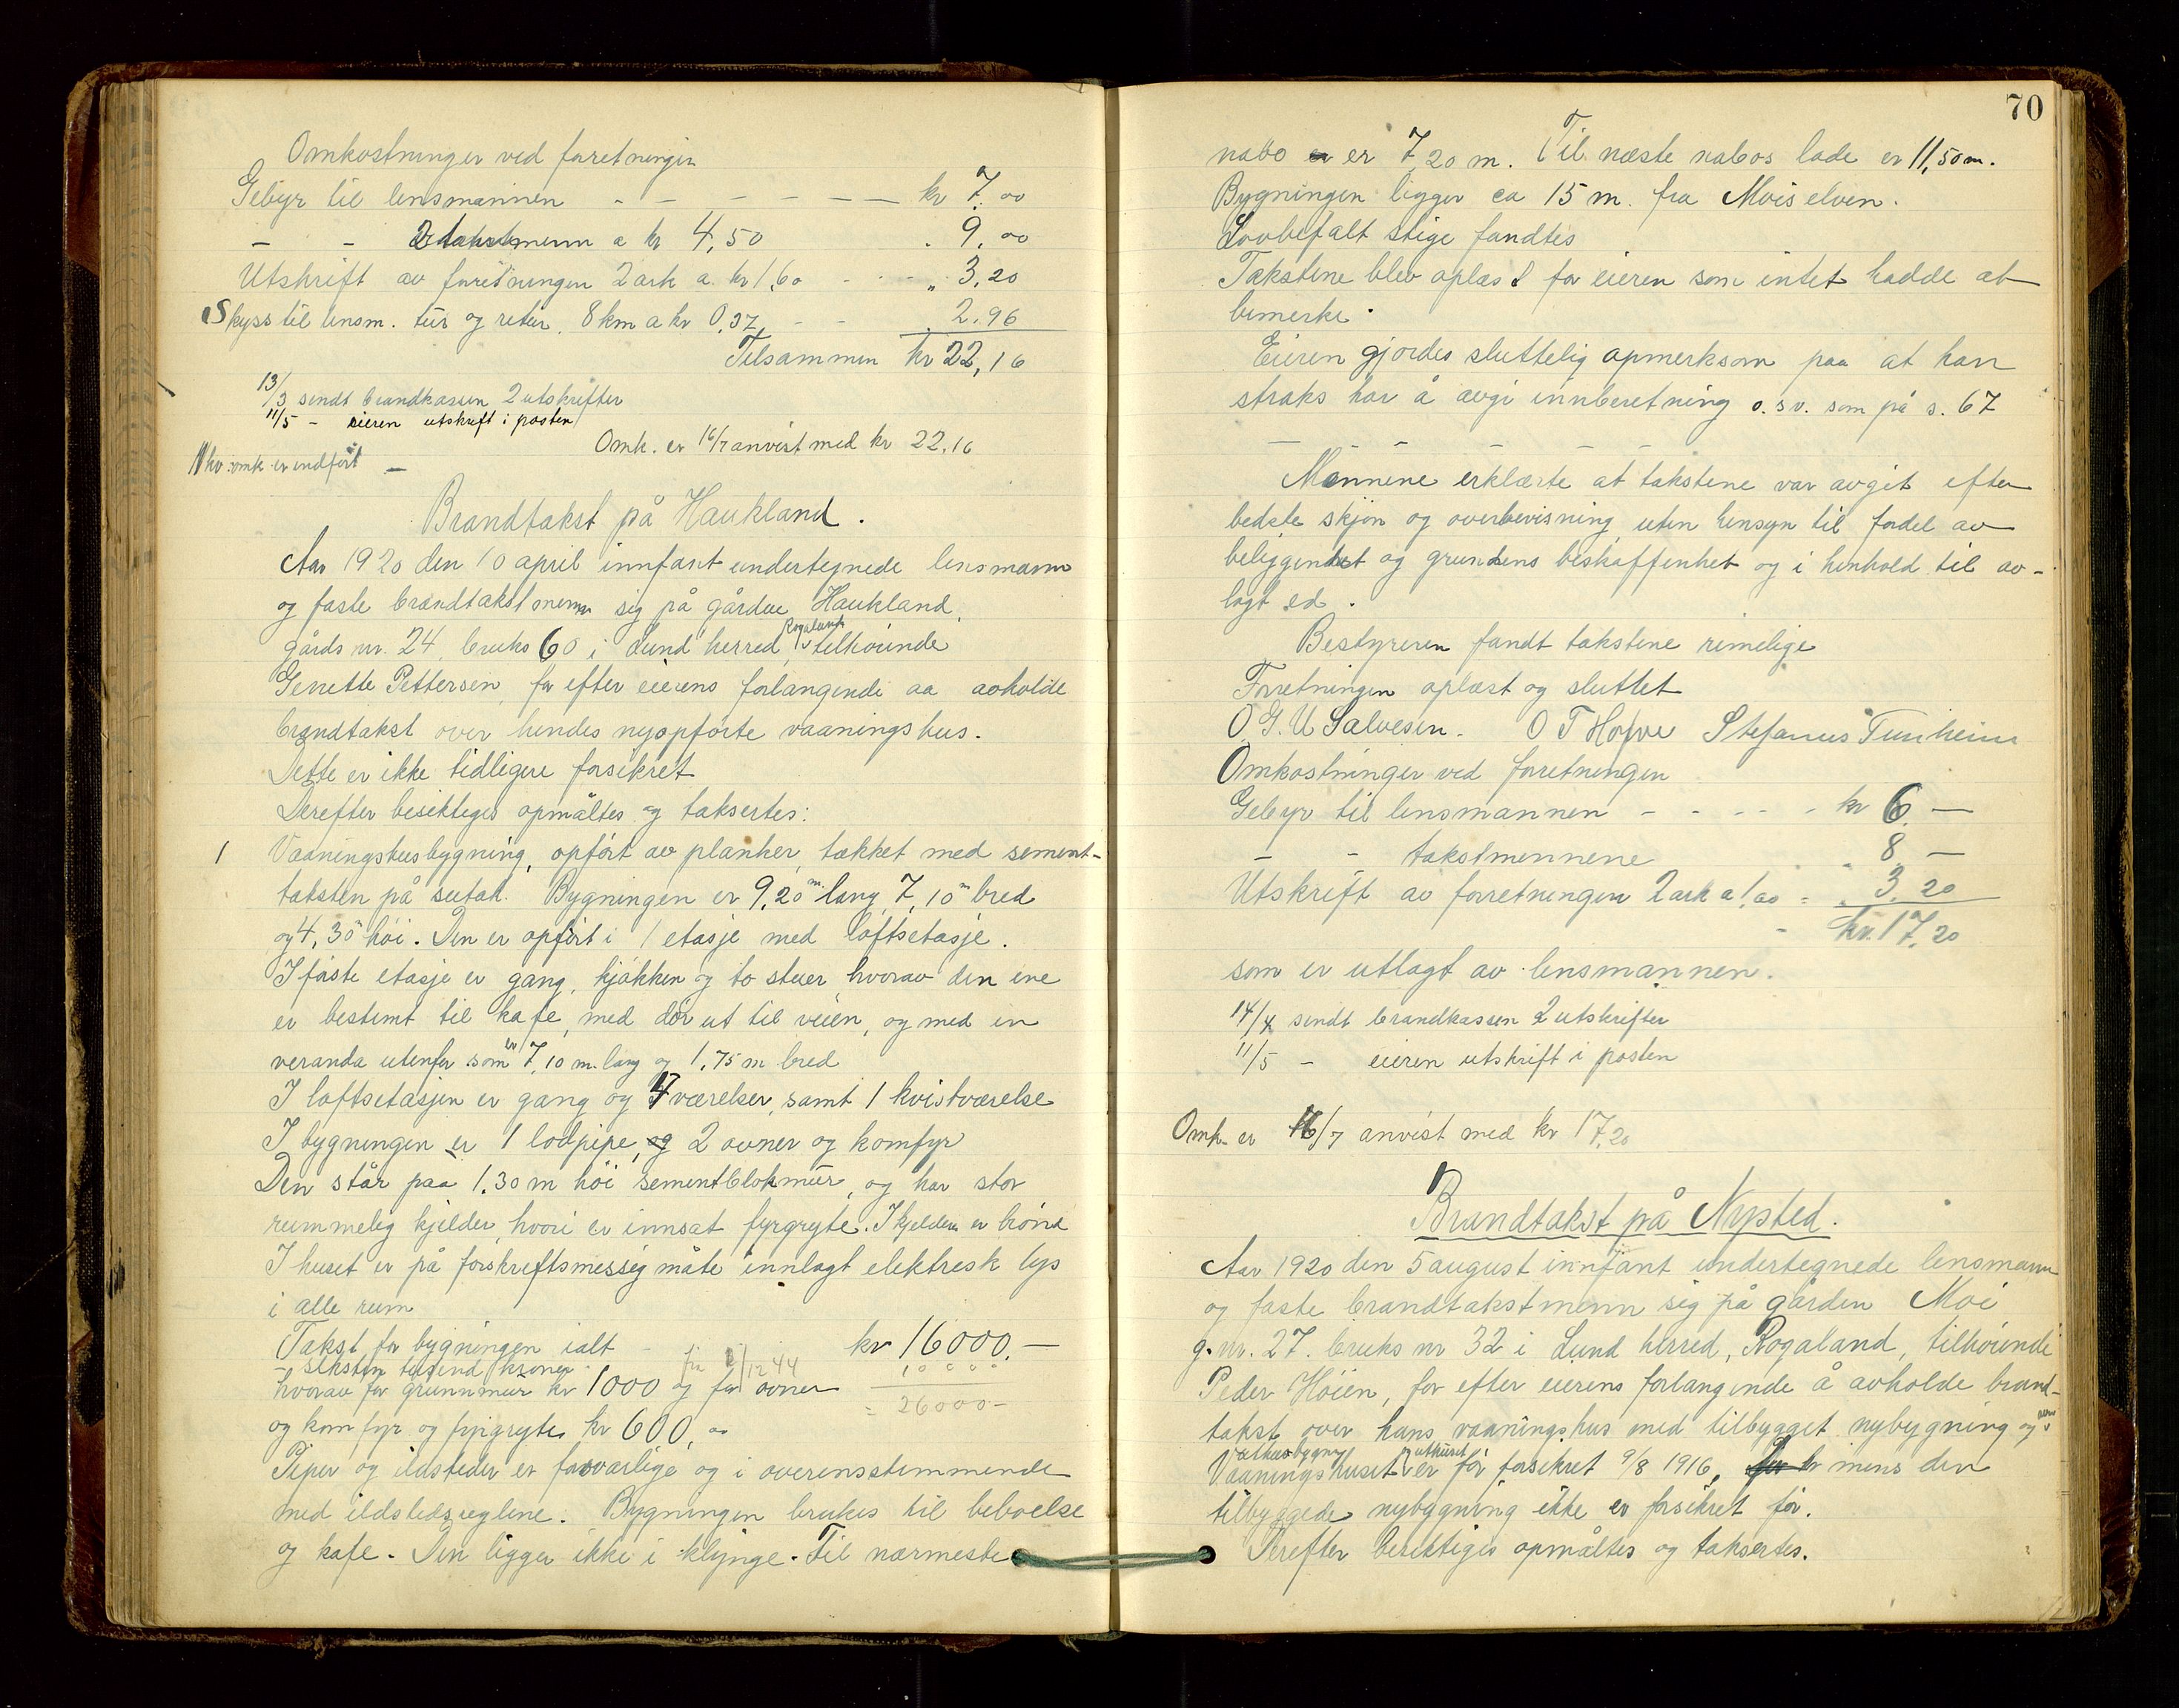 Omkostninger ved forretningen
Gebyr til lensmannen - - - - - - kr 7.00
- - 2 takstmenn a kr 4,50 . 9.00
Utskrift av forretningen 2 ark a. kr 1,60 - - „ 3,20
Skyss til lensm. tur og retur. 8 km a kr 0,37, - - 2.96
Tilsammen kr 22,16
13/3 sendt brandkassen 2 utskrifter
11/5 - eieren utskrift i posten
Omk. er 16/7 anvist med kr 22.16
omk. er indført -
Brandtakst på Haukland.
Aar 1920 den 10 april innfant undertegnede lensmann
og faste brandtakstmenn sig på gården Haukland,
gårds nr. 24, bruks 60 i Lund herred, Rogaland tilhørende
Pettersen, for efter eierens forlangende aa avholde
brandtakst over hendes nyopførte vaaningshus.
Dette er ikke tidligere forsikret
Derefter besiktiges opmåltes og taksertes:
1 Vaaningshusbygning, opført av planker, tækket med sement-
taksten på sutak. Bygningen er 9,20 m lang 7,10 m bred
og 4,30 m høi. Den er opført i 1 etasje med loftsetasje.
I første etasje er gang, kjøkken og to stuer hvorav den ene
er bestemt til kafe, med dør ut til veien, og med en
veranda utenfor som er 7,10 m. lang og 1,75 m bred
I loftsetasjen er gang og 4 værelser, samt 1 kvistværelse
I bygningen er 1 lodpipe, og 2 ovner og komfyr
Den står paa 1.30 m høi sementblokmur, og har stor
rummelig kjelder, hvori er innsat fyrgryte. I kjelderen er brønd
I huset er på forskriftsmessig måte innlagt elektresk lys
i alle rum
Takst for bygningen ialt - kr 16000.-
- seksten tusend kroner - fra 1/12 44 10000
hvorav for grunnmur kr 1000 og for ovner = 26000-
og komfyr og fyrgryte kr 600,00
Piper og ildsteder er forsvarlige og i overensstemmende
med ildstedsreglene. Bygningen brukes til beboelse
og kafe. Den ligger ikke i klynge. Til nærmeste
70
nabo er er 7,20 m. Til næste nabos lade er 11,50 m.
Bygningen ligger ca 15 m. fra Moiselven.
Lovbefalt stige fandtes
Takstene blev oplæst for eieren som intet hadde at
bemerke.
Eieren gjordes sluttelig opmerksom paa at han
straks har å avgi innberetning o.s.v. som på s. 67
- - - - -
Mennene erklærte at takstene var avgit efter
bedste skjøn og overbevisning uten hensyn til fordel av
beliggenhet og grundens beskaffenhet og i henhold til av-
lagt ed.
Bestyreren fandt takstene rimelige
Forretningen oplæst og sluttet
O. G. U Salvesen. O T Hofve Stefanus Tunheim
Omkostninger ved forretningen
Gebyr til lensmannen - - - - - kr 6.-
- - takstmennene „ 8.-
Utskrift av forretningen 2 ark a 1.60 = „ 3,20
- kr. 17,20
som er utlagt av lensmannen.
14/4 sendt brandkassen 2 utskrifter
11/5 - eieren utskrift i posten
Omk. er 16/7 anvist med kr 17,20
Brandtakst på Nysted.
Aar 1920 den 5 august innfant undertegnede lensmann
og faste brandtakstmenn sig på gården Moi
g. nr. 27. bruks nr 32 i Lund herred, Rogaland, tilhørende
Peder Høien, for efter eierens forlangende å avholde brand-
takst over hans vaaningshus med tilbygget nybygning og
uthusbygning
Vaaningshuset og uthuset er før forsikret 9/8 1916, mens den
tilbyggede nybygning ikke er forsikret før.
Derefter besiktiges opmåltes og taksertes.